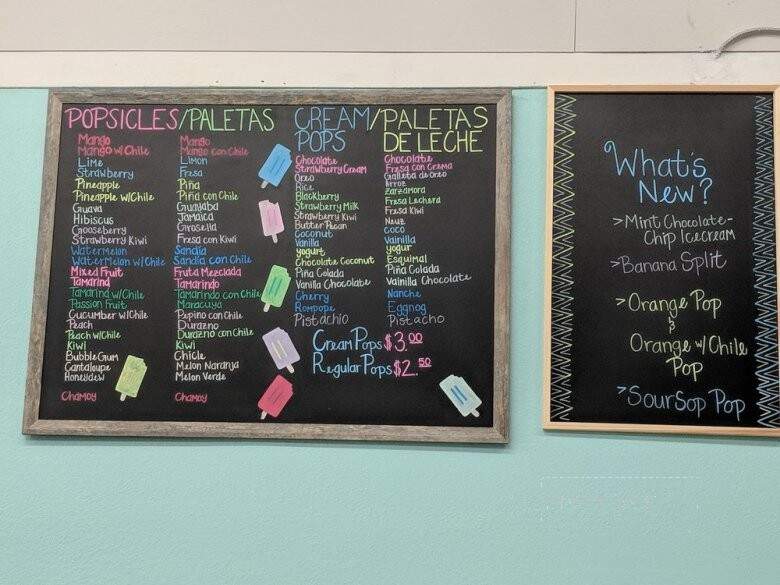 POPSICLES/PALETAS
Mango Mango
Mango w/Chile Mango con Chile
Lime Limon
Strawberry Fresa
Pineapple Piña
Pineapple w/Chile Piña con Chile
Guava Guayaba
Hibiscus Jamaica
Gooseberry Grosella
Strawberry Kiwi Fresa con Kiwi
Watermelon Sandia
Watermelon w/Chile Sandia con Chile
Mixed Fruit Fruta Mezclada
Tamarind Tamarindo
Tamarind w/Chile Tamarindo con Chile
Passion Fruit Maracuya
Cucumber w/Chile Pepino con Chile
Peach Durazno
Peach w/Chile Durazno con Chile
Kiwi Kiwi
BubbleGum Chicle
Cantaloupe Melon Naranja
Honeydew Melon Verde
Chamoy Chamoy
CREAM/PALETAS
POPS DE LECHE
Chocolate Chocolate
Strawberry Cream Fresa con Crema
Oreo Galleta de Oreo
Rice Arroz
Blackberry Zarzamora
Strawberry Milk Fresa Lechera
Strawberry Kiwi Fresa Kiwi
Butter Pecan Nuez
Coconut Coco
Vanilla Vainilla
Yogurt Yogur
Chocolate Coconut Esquimal
Piña Colada Piña Colada
Vanilla Chocolate Vainilla Chocolate
Cherry Nanche
Rompope Eggnog
Pistachio Pistacho
Cream Pops $3.00
Regular Pops $2.50
What's
New?
>Mint Chocolate-
Chip Icecream
>Banana Split
>Orange Pop
&
Orange w/Chile
Pop
>SourSop Pop